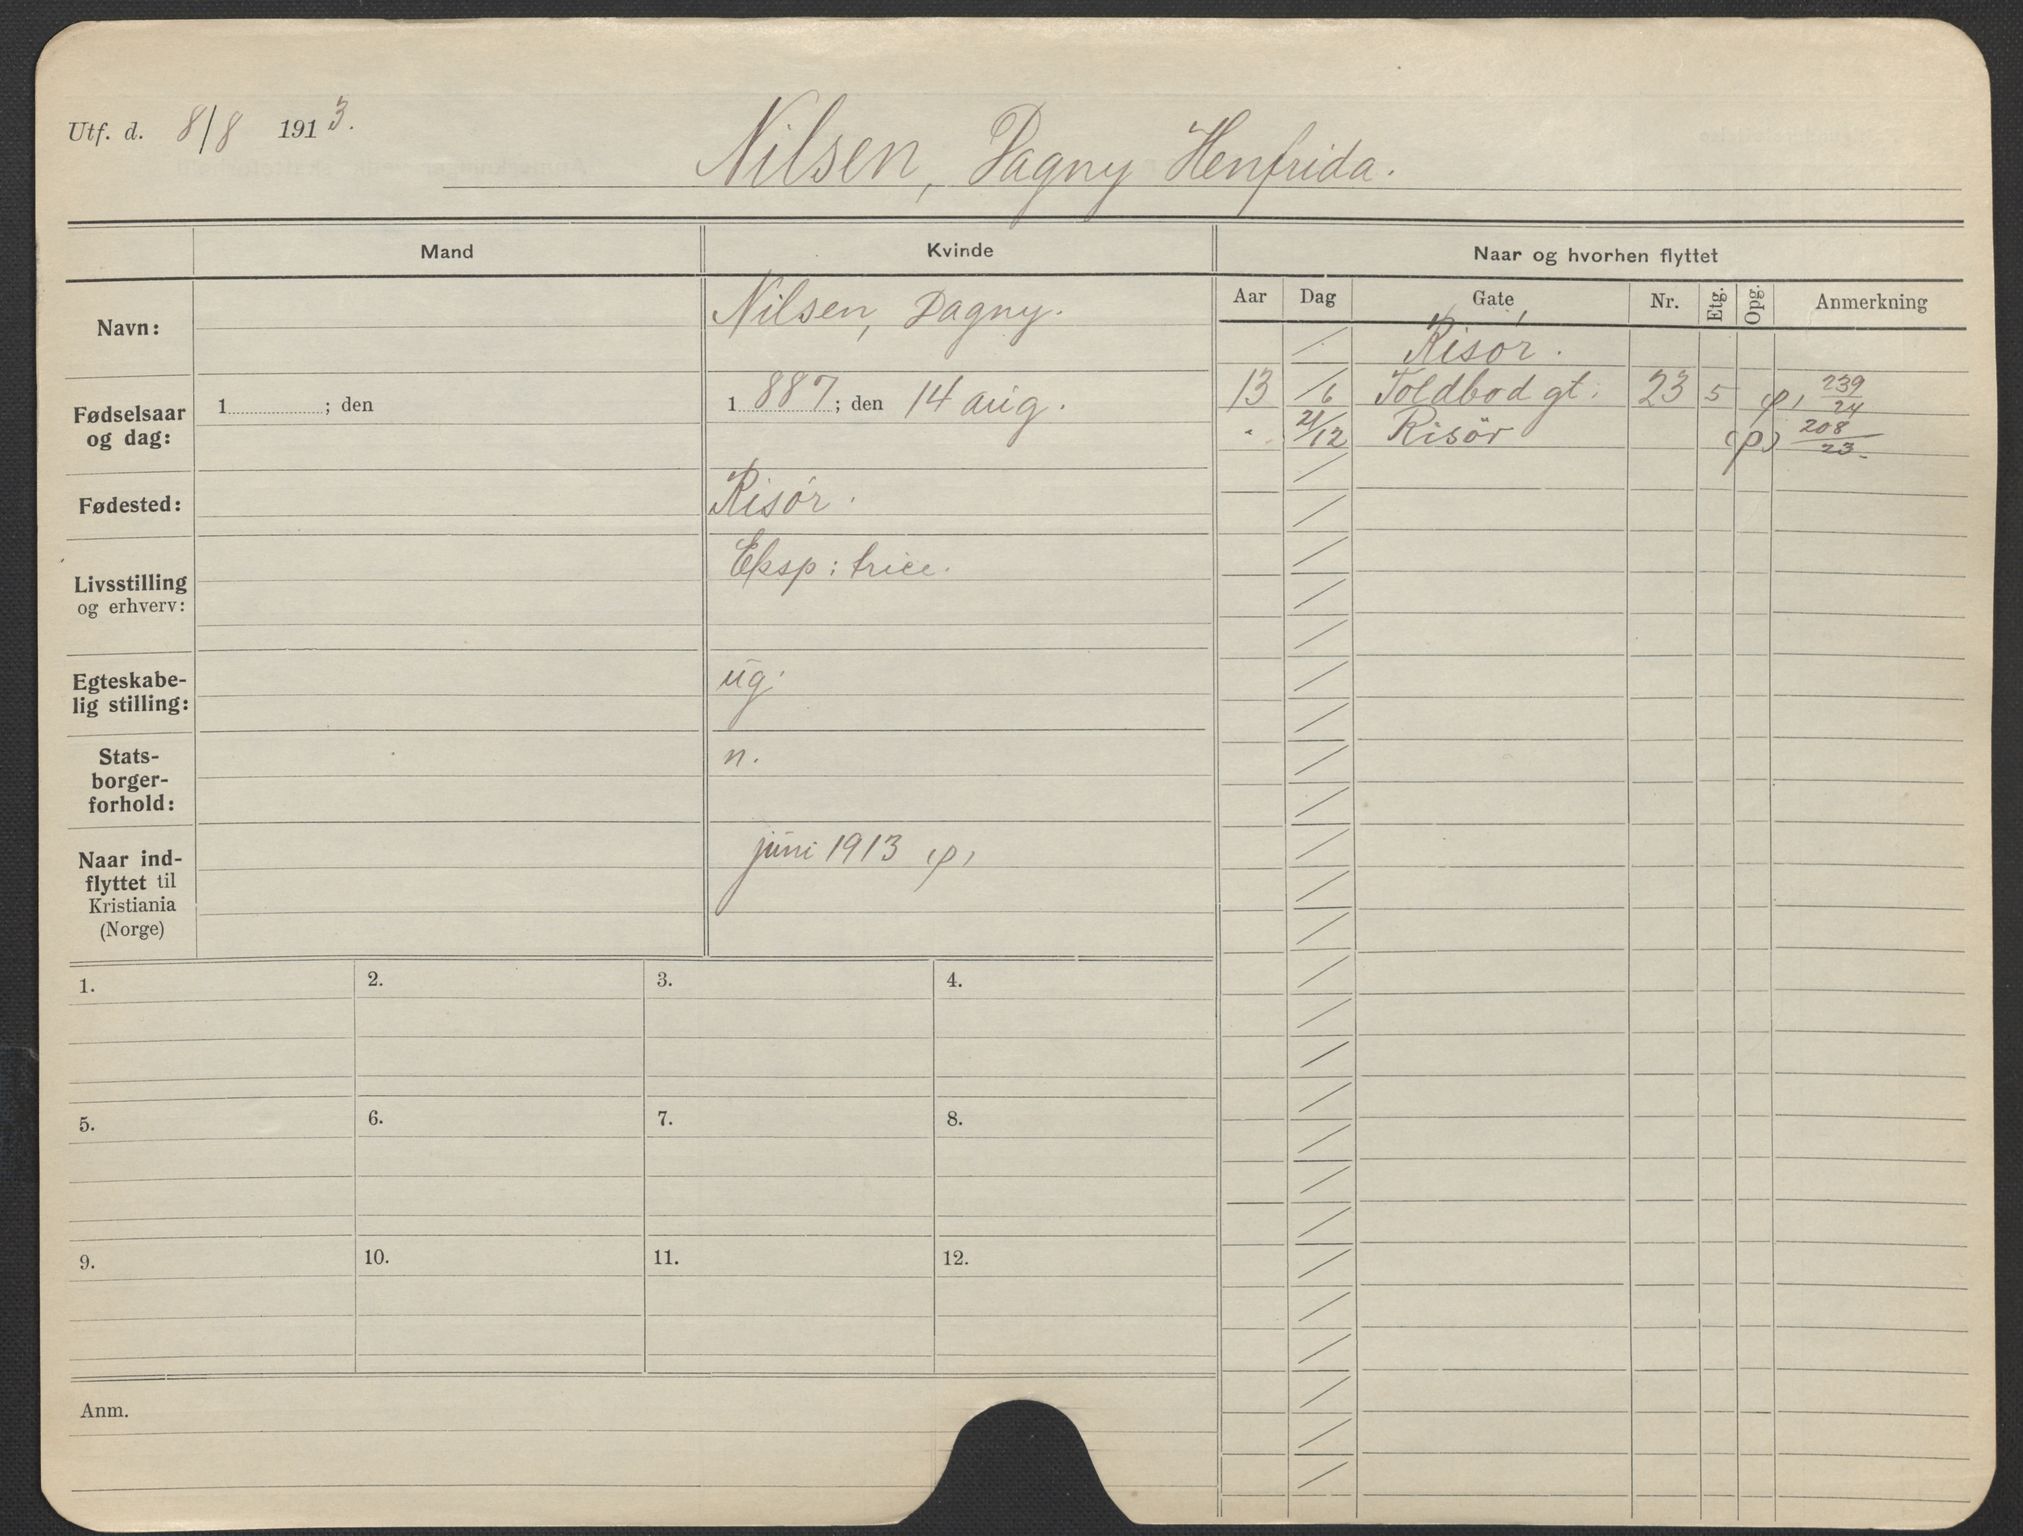 Utf. d. 8/8 1913.
Nilsen, Dagny Henfrida.
Mand
Kvinde
Naar og hvorhen flyttet
Aar Dag Gate Nr. Etg. Opg. Anmerkning
Navn:
Nilsen, Dagny.
Fødselsaar og dag:
1 ; den
1 887 ; den 14 aug.
Fødested:
Risør.
Livsstilling
og erhverv:
Eksp: trice.
Egteskabe-
lig stilling:
ug.
Stats-
borger-
forhold:
n.
Naar ind-
flyttet til
Kristiania
(Norge)
juni 1913 (p)
/ Risør.
13 /6 Toldbod gt: 23 5 (p) 239/24
" 21/12 Risör (p) 208/23.
1. 2. 3. 4.
5. 6. 7. 8.
9. 10. 11. 12.
Anm.